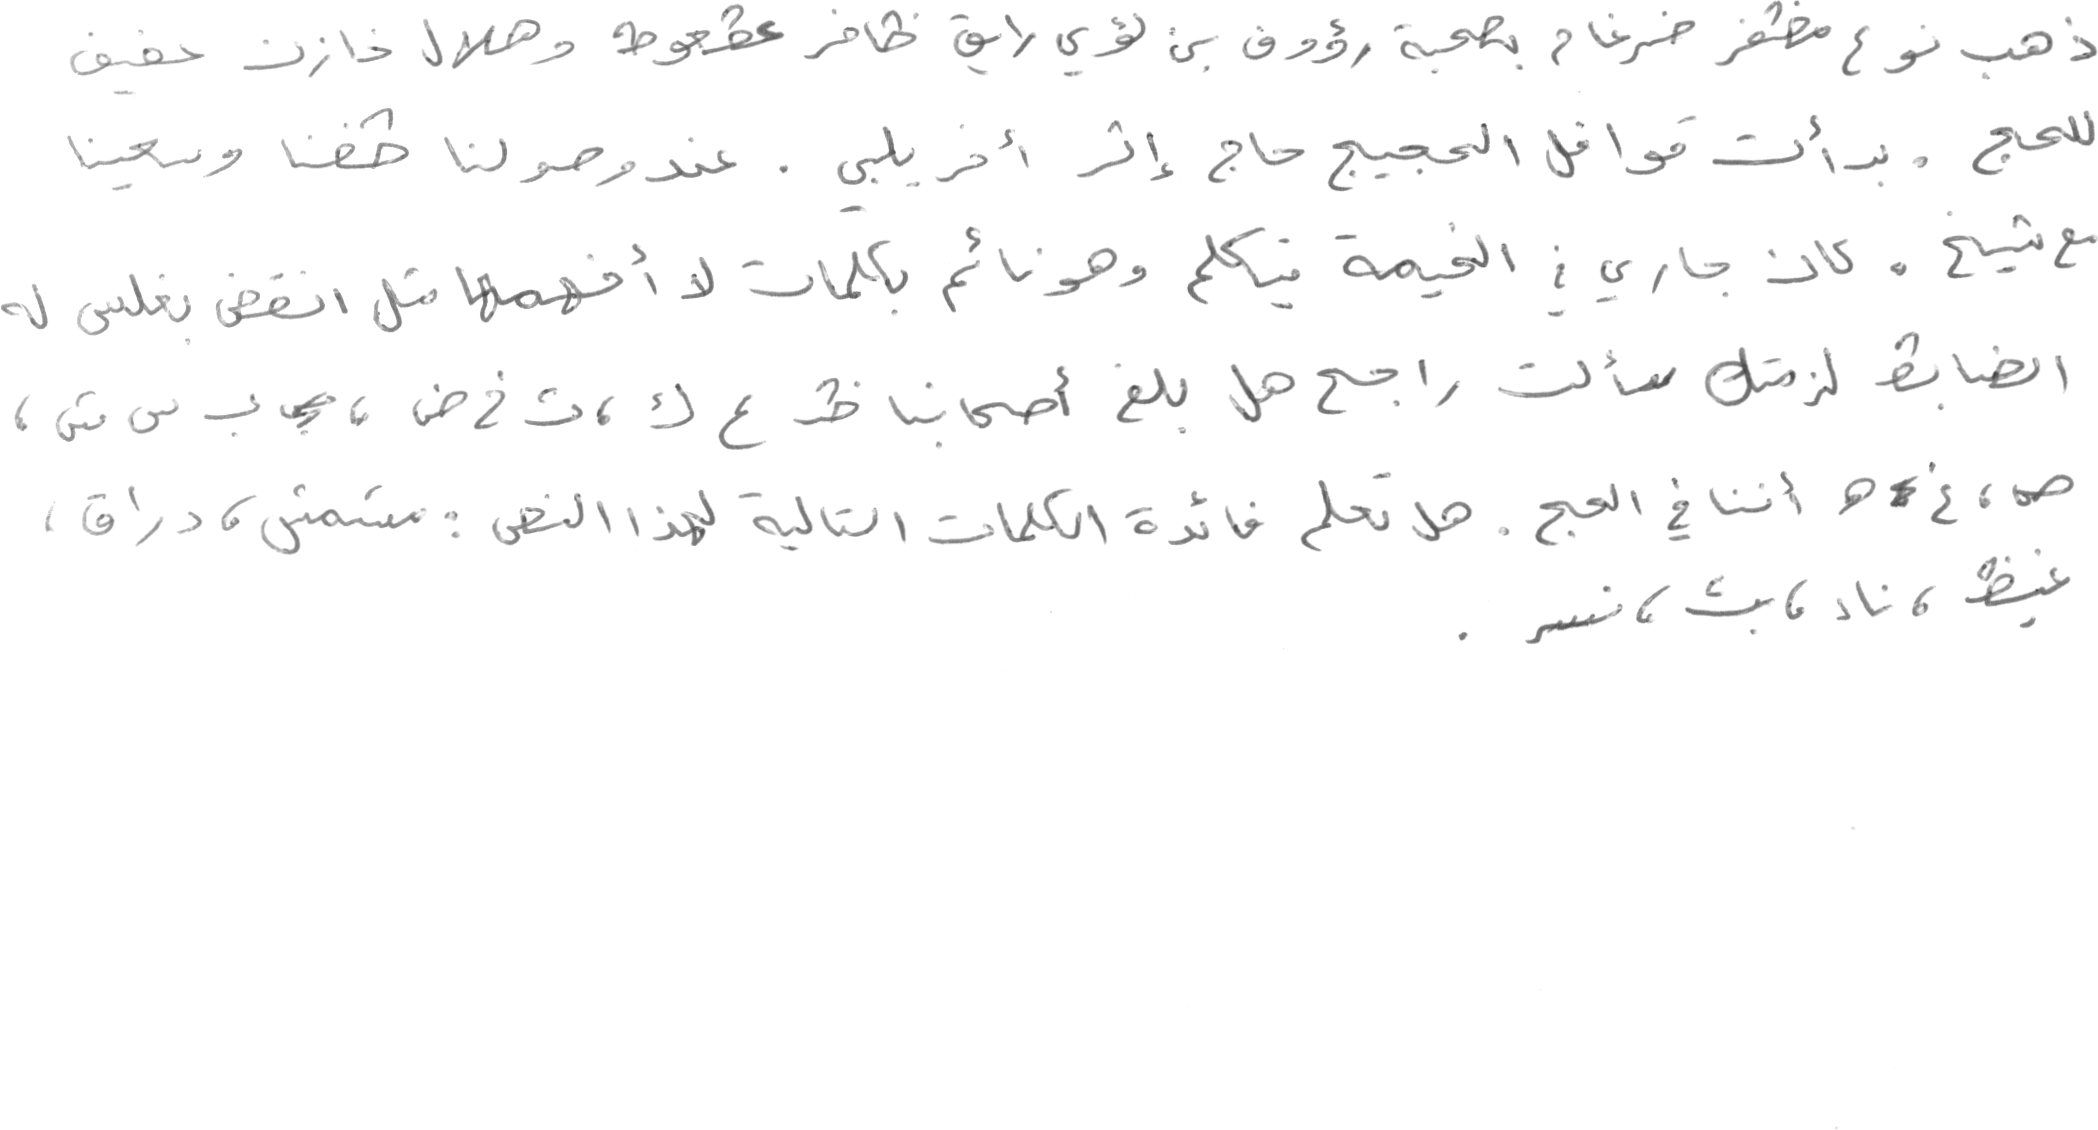 ذهب نوع مظفر ضرغام بصحبة رؤوف بن لؤي رايق ظافر عطعوط وهلال خازن عفيف
للحج . بدأت قوافل الحجيج حاج إثر أخر يلبي . عند وصولنا طفنا وسعينا
مع شيخ . كان جاري في الخيمة يتكلم وهو نائم بكلمات لا أفهمها مثل انقض بغلس له
الضابط لزمتك سألت راجح هل بلغ أصحابنا ظ ع ك ، ث خ ض ، ب س ش ،
ص ، غ ه أننا في الحج . هل تعلم فائدة الكلمات التالية لهذا النص : مشمش ، دراق ،
غيظ ، ناد ، بث ، نسر .